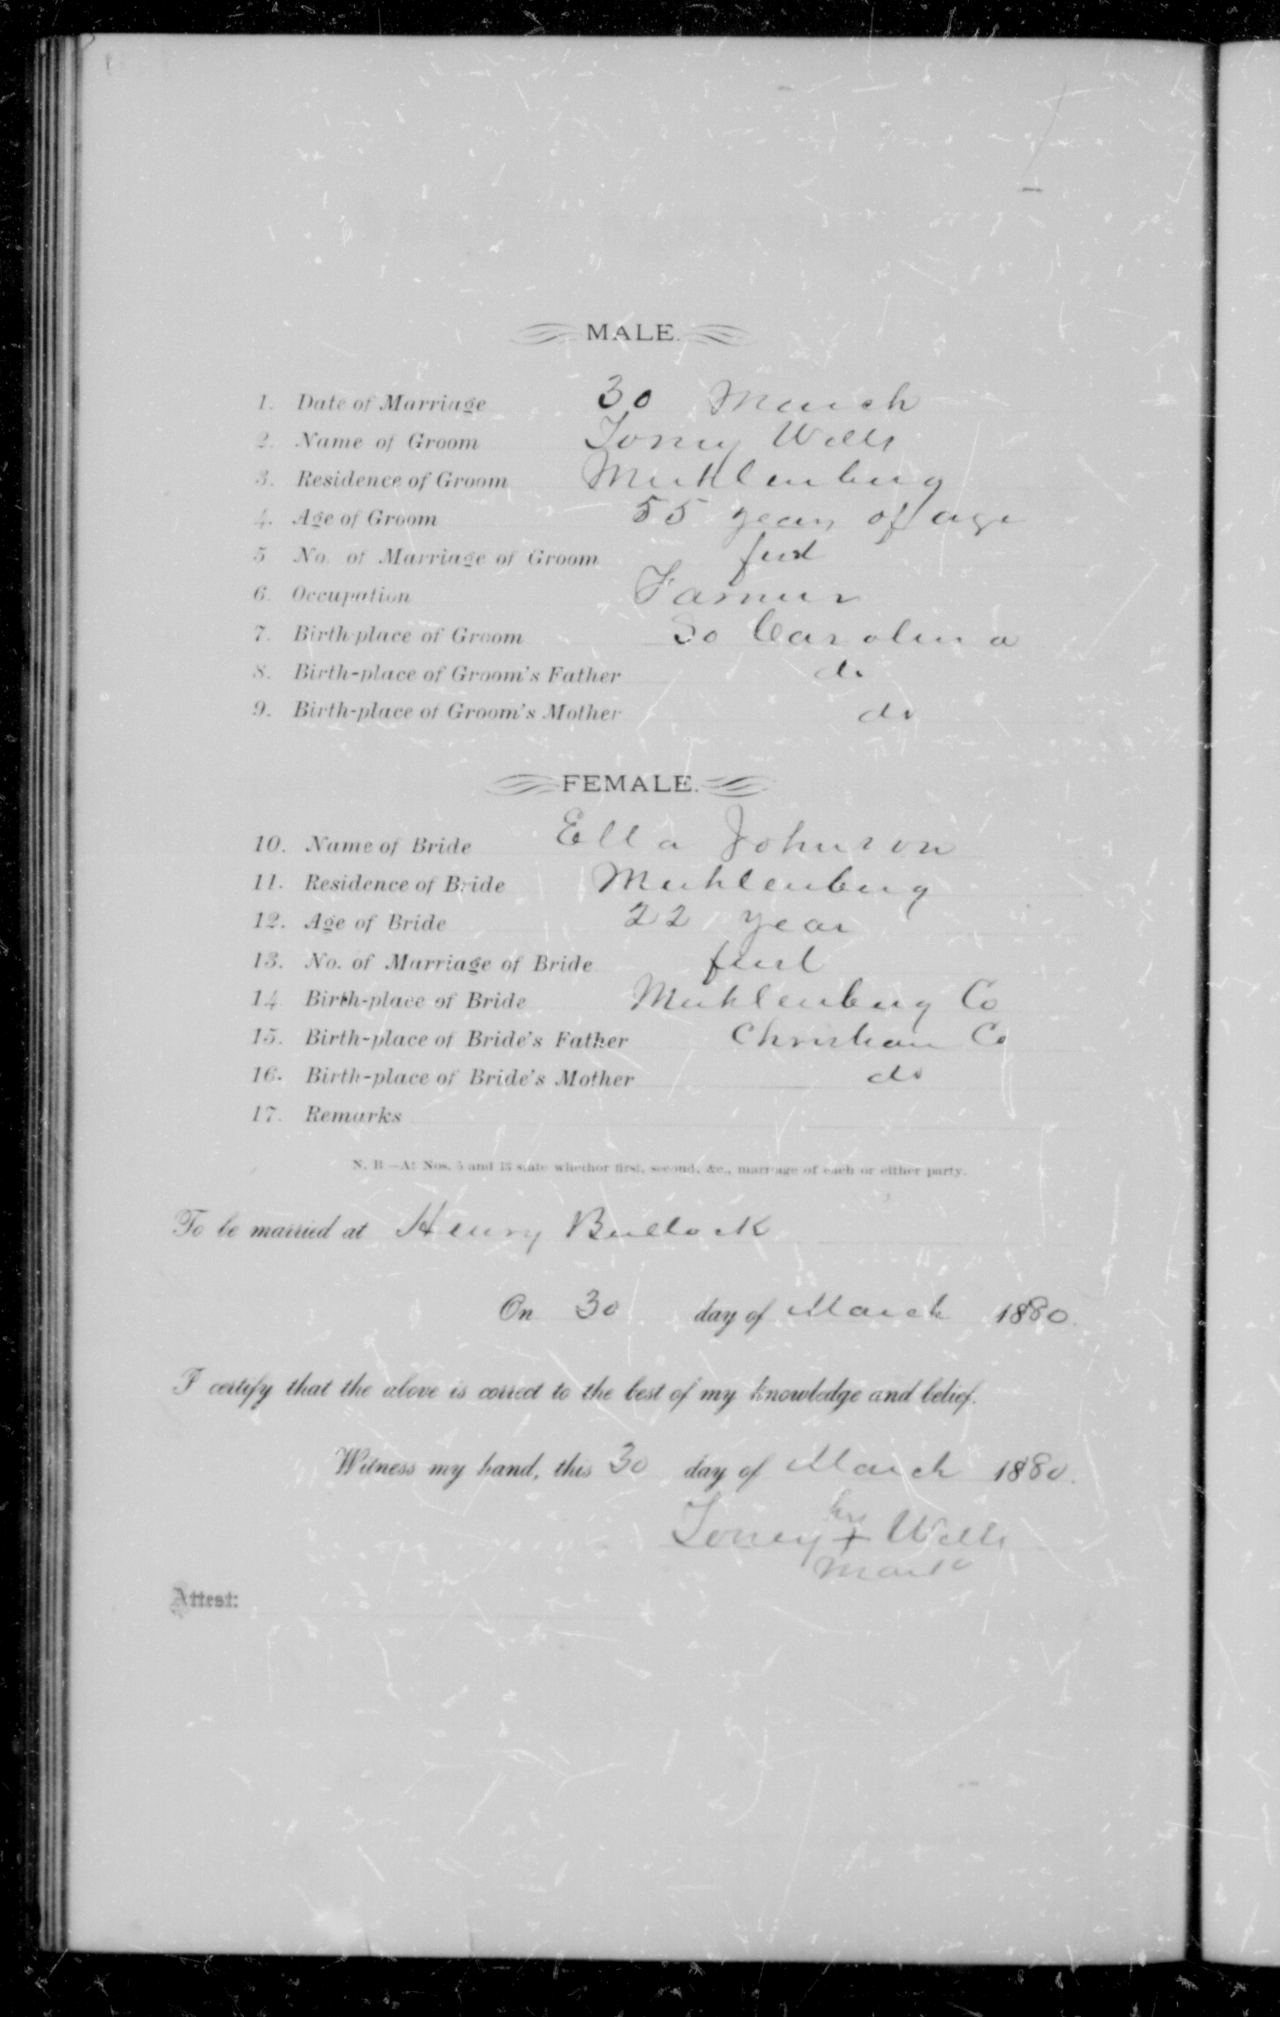 MALE.
1. Date of Marriage 30 March
2. Name of Groom Toney Wells
3. Residence of Groom Muhlenburg
4. Age of Groom 55 years of age
5 No. of Marriage of Groom first
6. Occupation Farmer
7. Birth-place of Groom So Carolina
8. Birth-place of Groom's Father do
9. Birth-place of Groom's Mother do
FEMALE.
10. Name of Bride Ella Johnson
11. Residence of Bride Muhlenburg
12. Age of Bride 22 year
13. No. of Marriage of Bride first
14 Birth-place of Bride Muhlenburg Co
15. Birth-place of Bride's Father Christian Co
16. Birth-place of Bride's Mother do
17. Remarks
N. B.—At Nos. 5 and 13 state whether first, second, &c., marriage of each or either party.
To be married at Henry Bullock
On 30 day of March 1880.
I certify that the above is correct to the best of my knowledge and belief.
Witness my hand, this 30 day of March 1880.
his
Toney + Wells
mark
Attest: